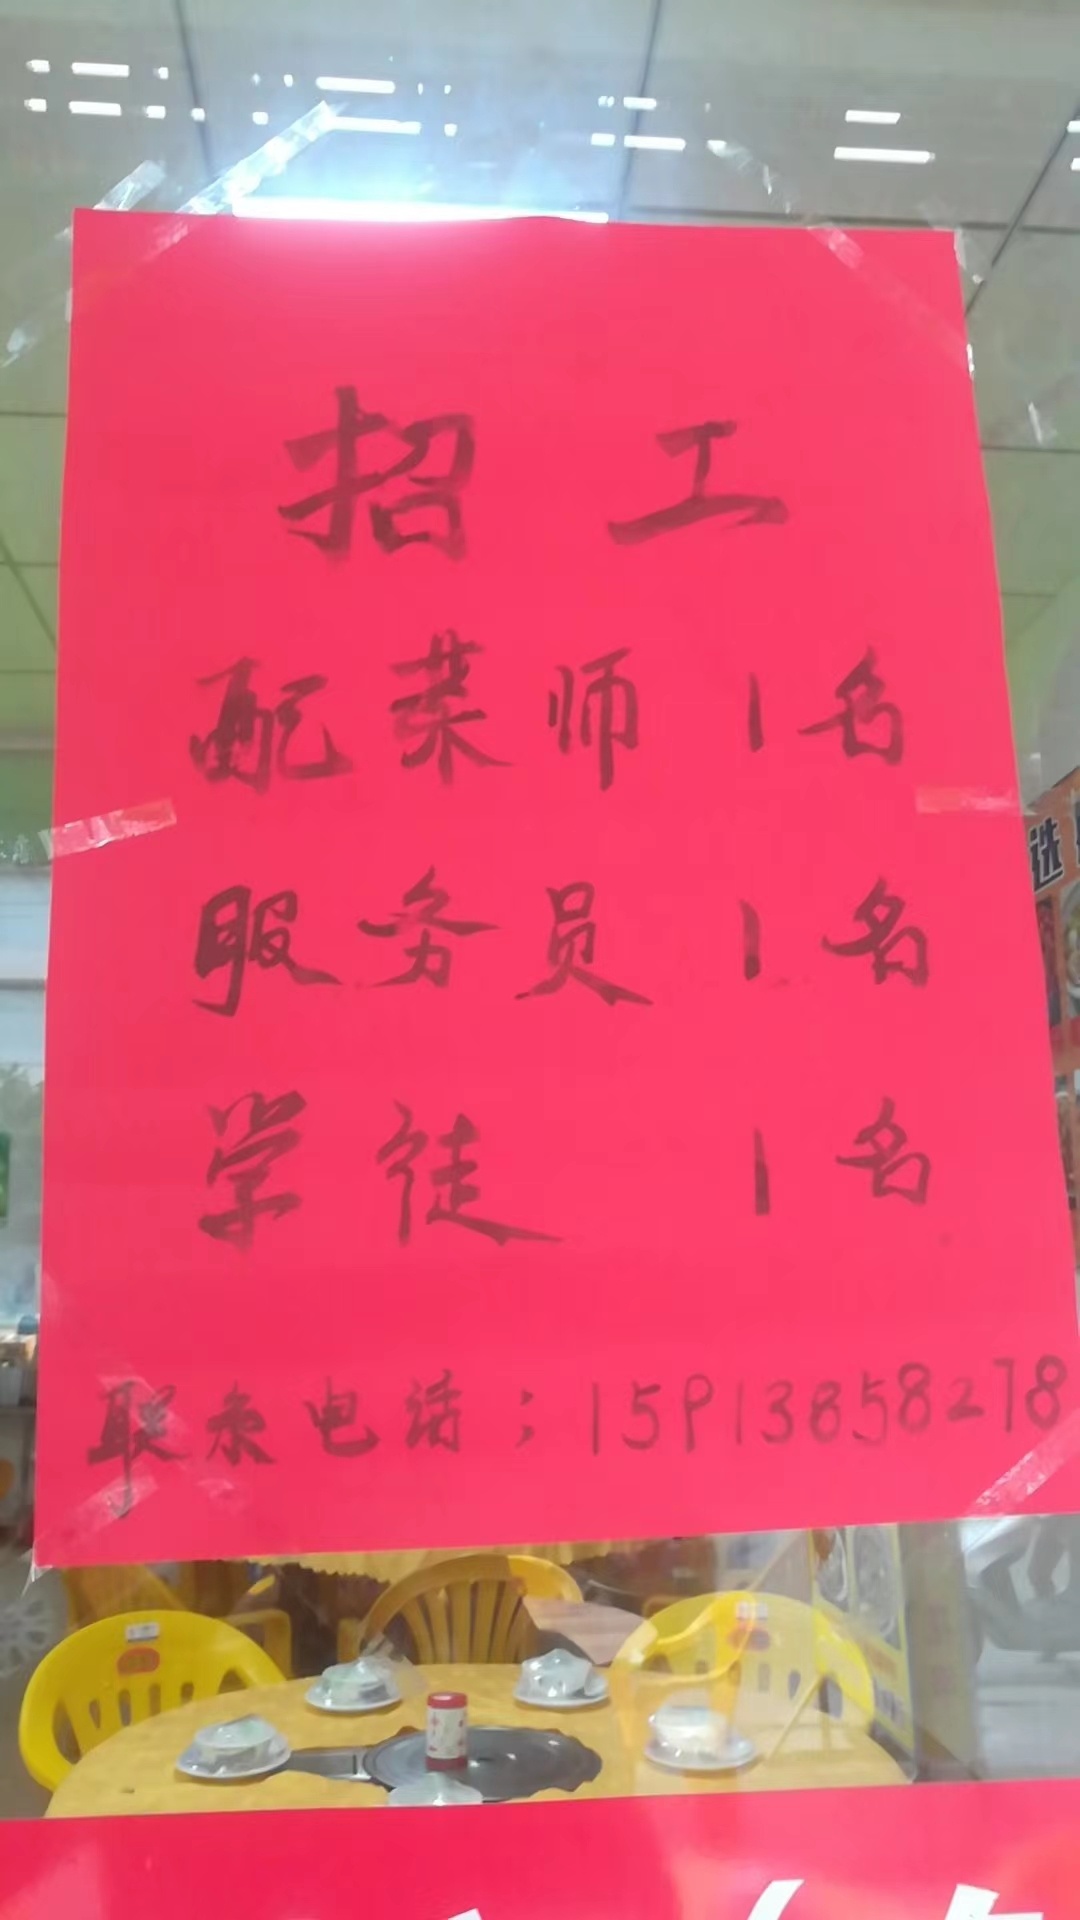 招工
配菜师 1名
服务员 1名
学徒 1名
联系电话:15913858278
选